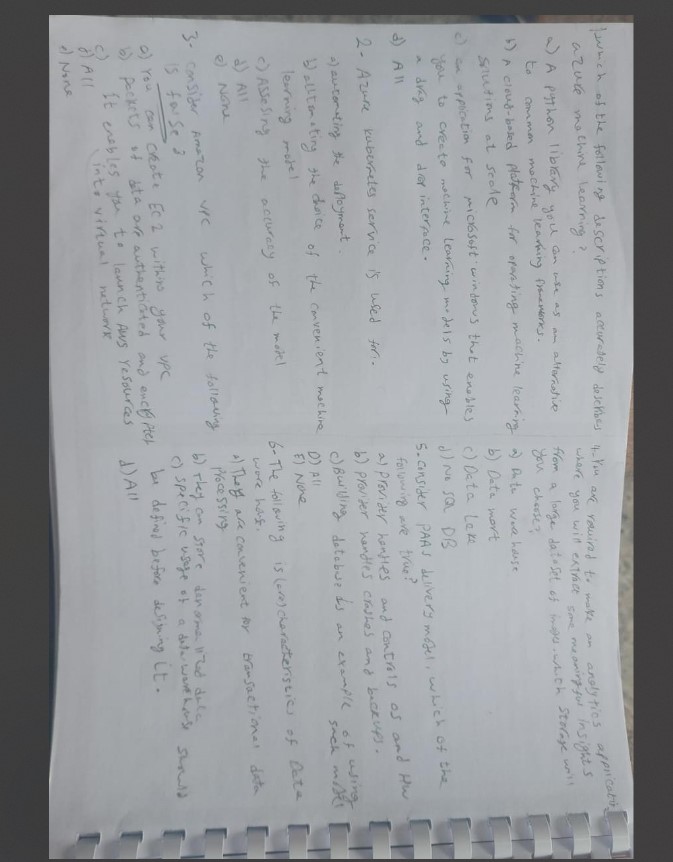 1. which of the following descriptions accurately describes
azure machine learning?
a) A python library you can use as an alternative
to common machine learning frameworks.
b) A cloud-based platform for operating machine learning
solutions at scale
c) an application for microsoft windows that enables
you to create machine learning models by using
a drag and drop interface.
d) All
2- Azure kubernetes service is used for:-
a) automating the deployment.
b) the choice of the convenient machine
learning model
c) Assesing the accuracy of the model
d) All
e) None
3- Consider Amazon VPC which of the following
is false?
a) You can create EC2 within your VPC
b) Packets of data are authenticated and encrypted
c) It enables you to launch AWS resources
into virtual network
d) All
e) None
4- You are required to make an analytics
where you will extract some meaningful insights
from a large dataset of images. which storage will
you choose?
a) Data ware house
b) Data mart
c) Data Lake
d) No SQL DB
5. Consider PAAS delivery model, which of the
following are true?
a) Provider handles and controls OS and HW
b) provider handles crashes and backups.
c) Building database is an example of using
such model
D) All
E) None
6- The following is (are) characteristics of Data
ware
a) They are convenient for transactional data
Processing
b) They can store data
c) specific usage of a data-ware house should
be defined before designing it.
d) All